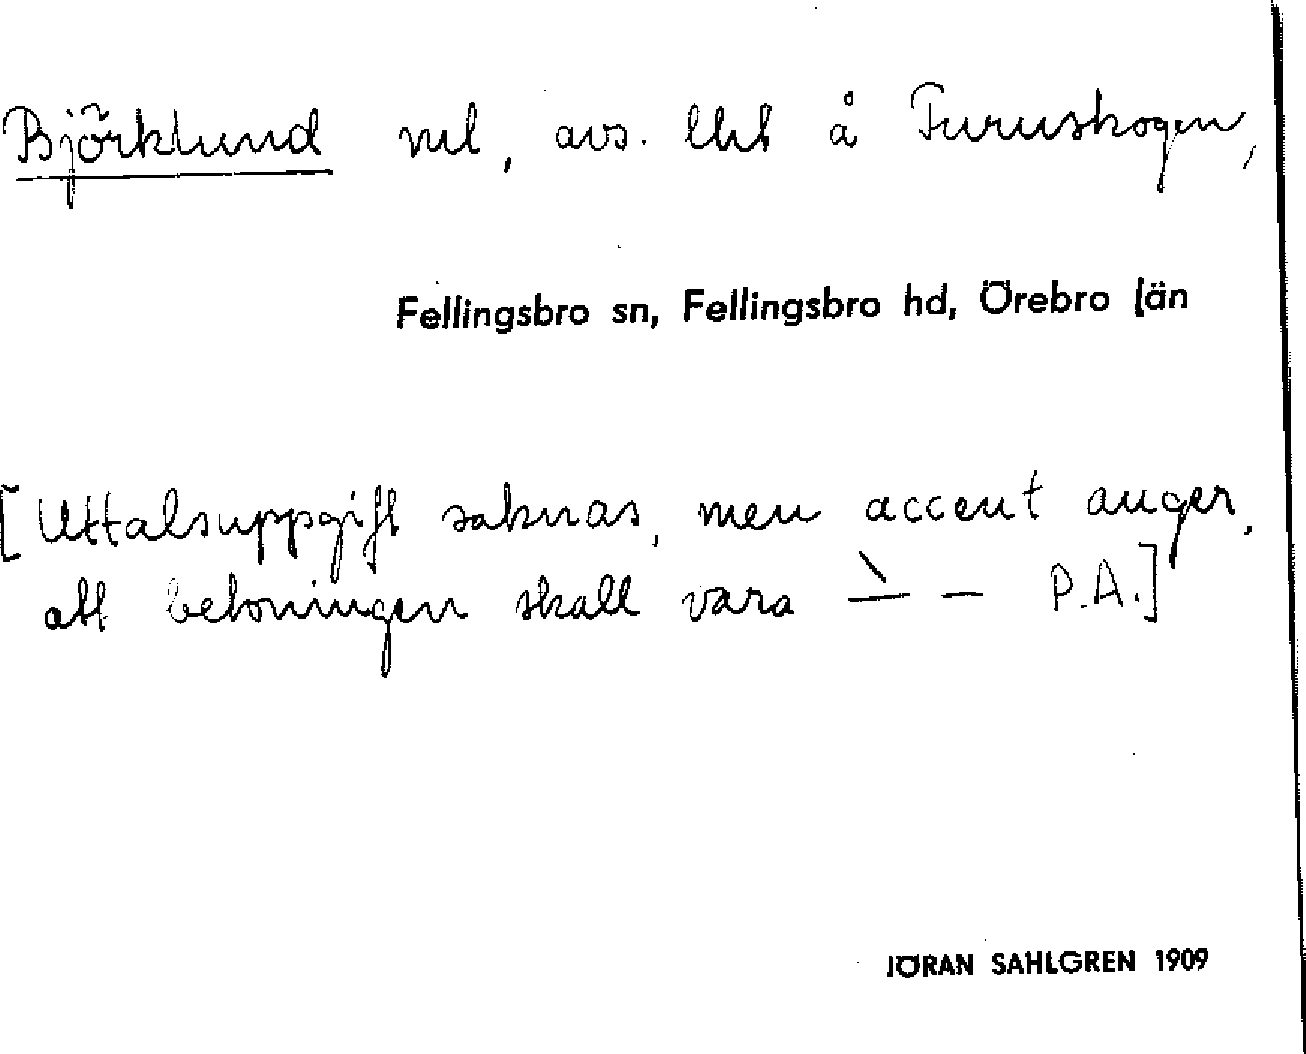 Björklund nel, avs. lht å Furuskogen,
Fellingsbro sn, Fellingsbro hd, Örebro län
[Uttalsuppgift saknas, men accent anger,
att betoningen skall vara –̀ – P.A.]
JÖRAN SAHLGREN 1909